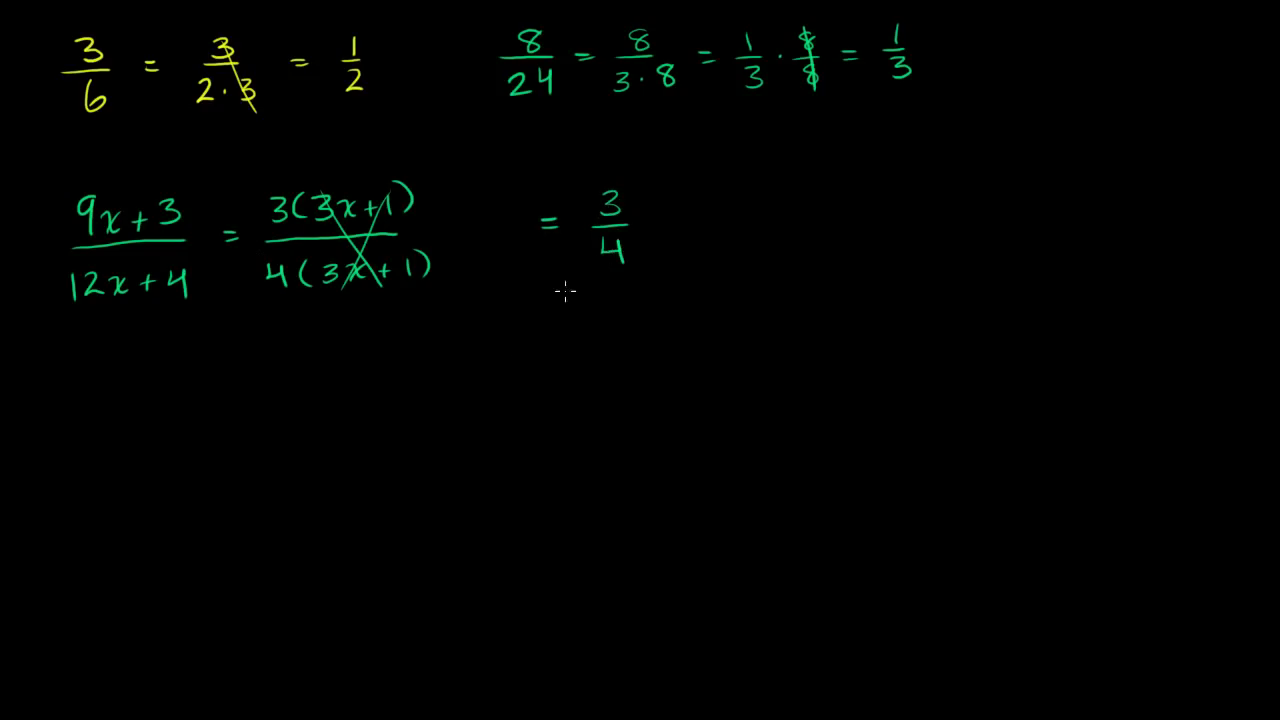 3/6 = 3/(2·3) = 1/2
8/24 = 8/(3·8) = 1/3 · 8/8 = 1/3
(9x+3)/(12x+4) = 3(3x+1)/4(3x+1) = 3/4